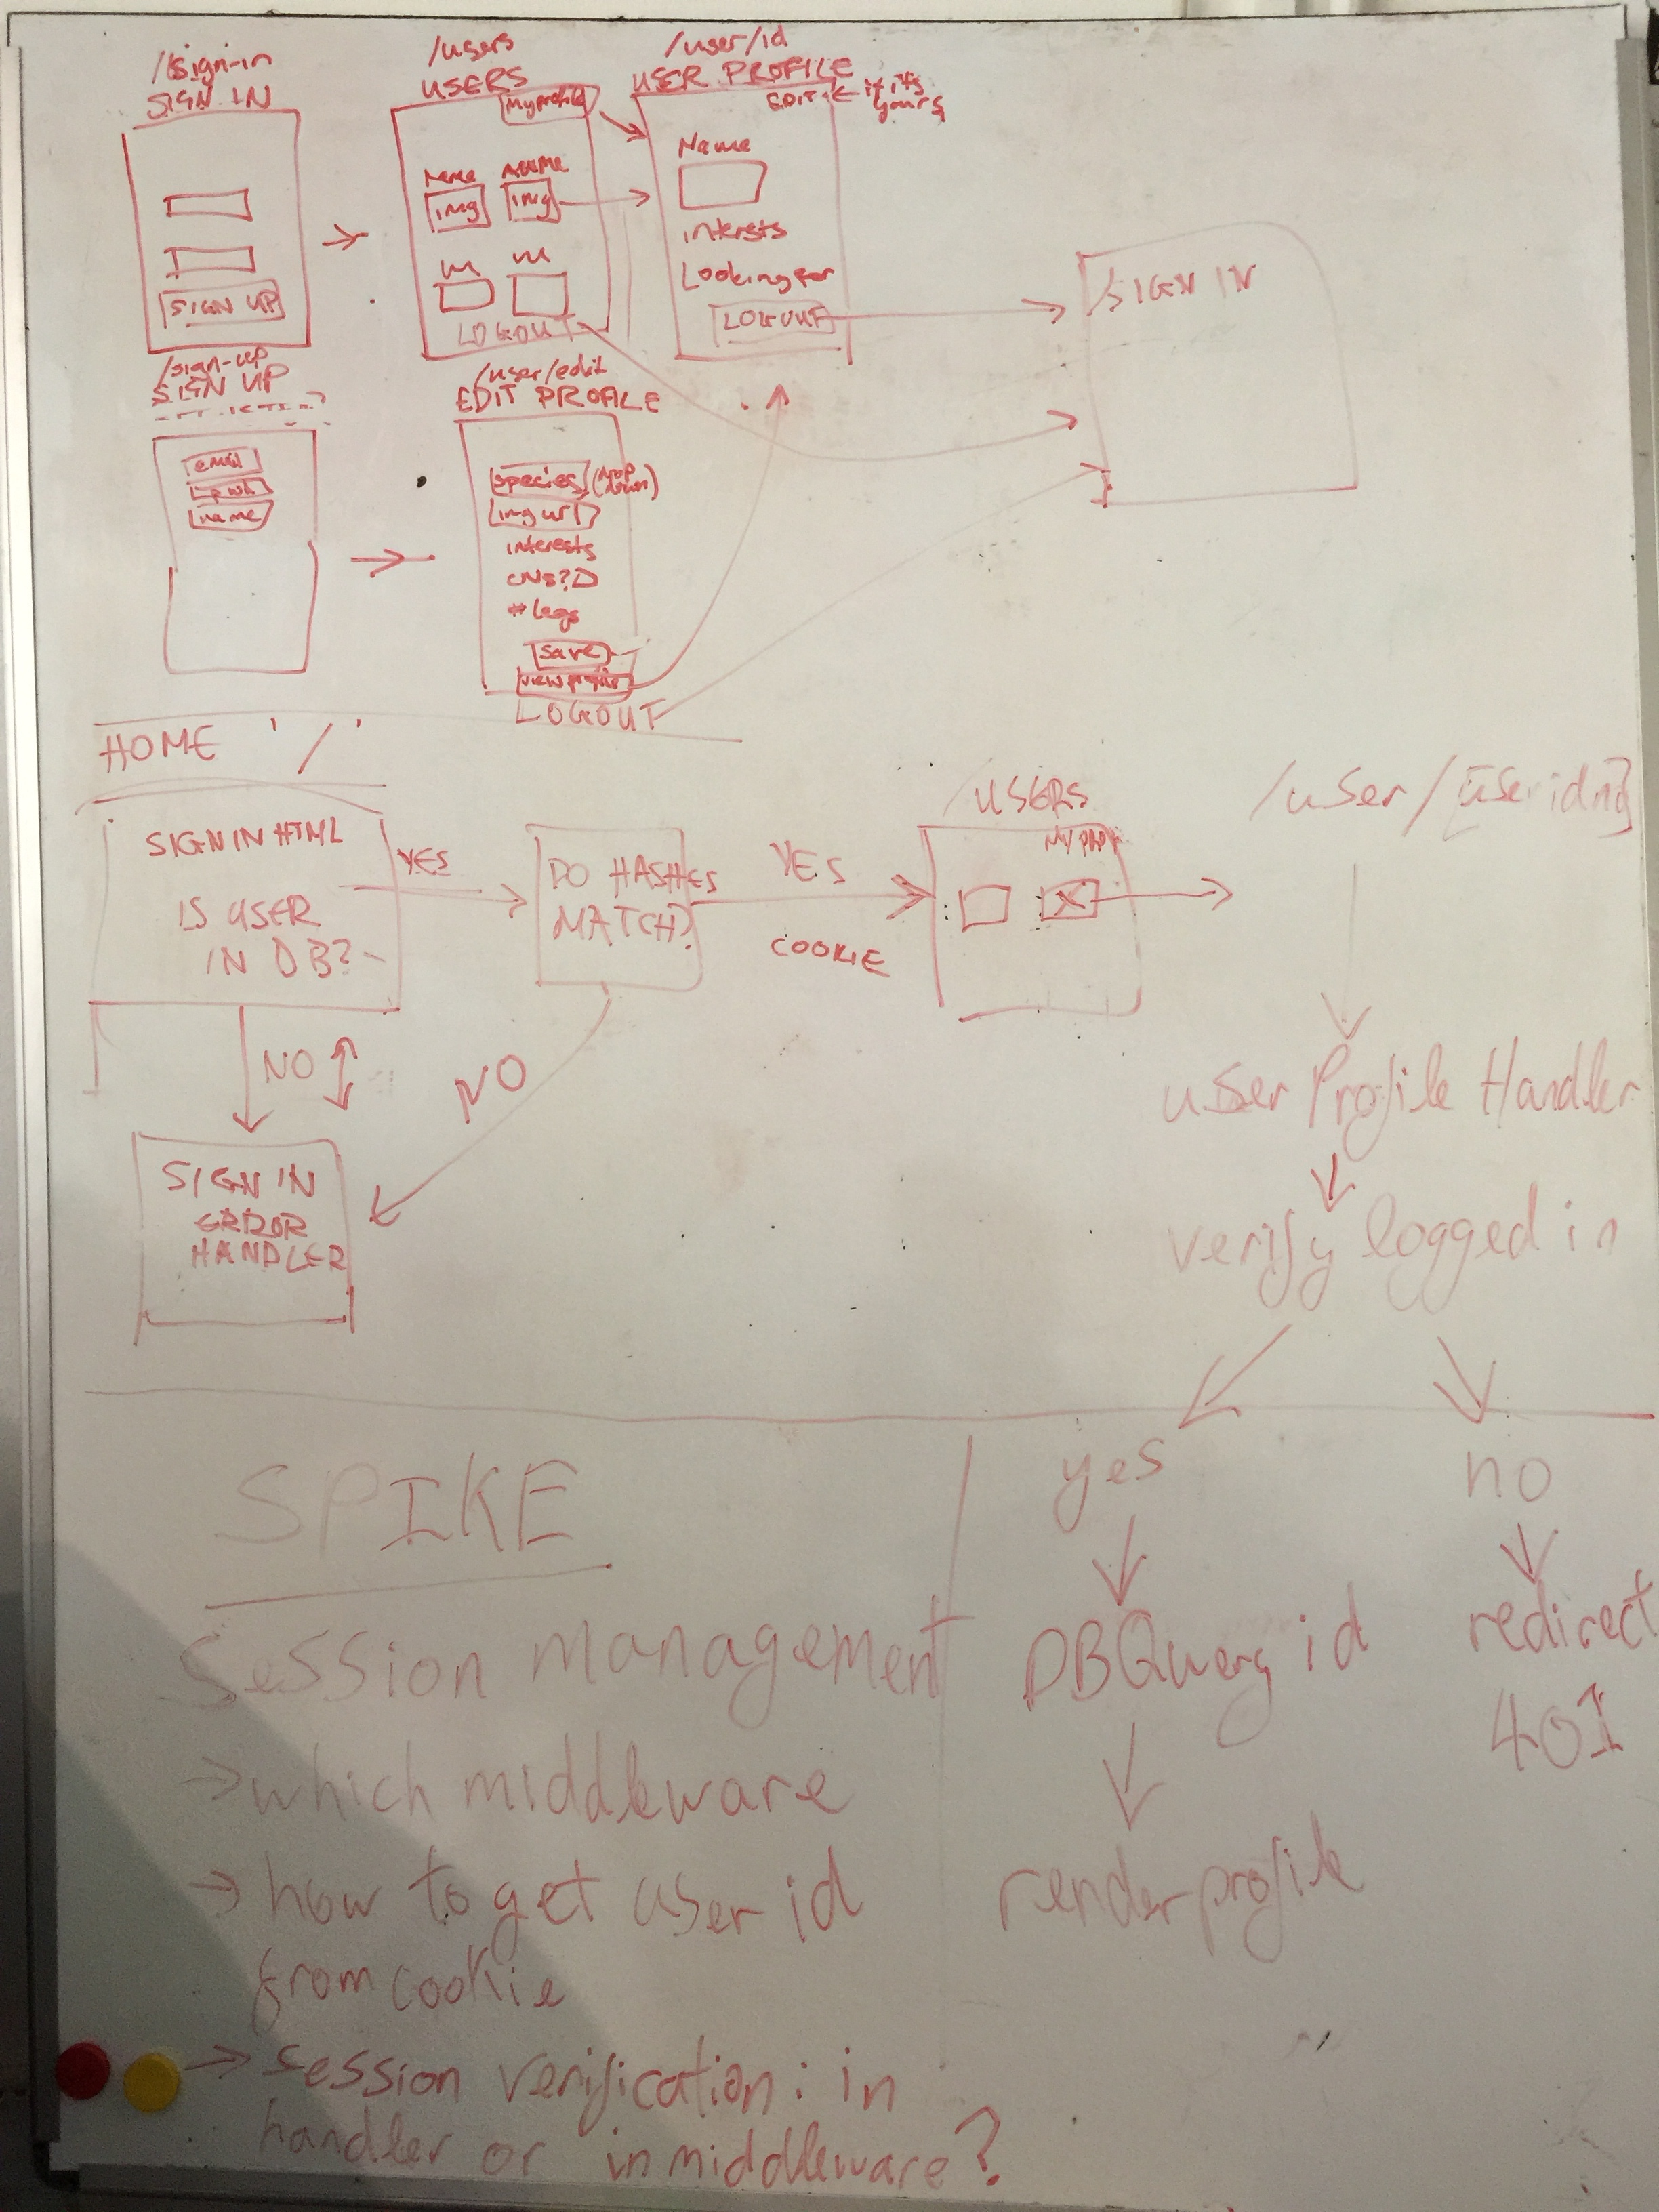 /sign-in
SIGN IN
SIGN UP
/users
USERS
My profile
Name
Name
img
img
LOGOUT
/user/id
USER PROFILE
EDIT ← if it's
yours
Name
interests
Looking for
LOGOUT
/SIGN IN
/sign-up
SIGN UP
email
name
/user/edit
EDIT PROFILE
species (drop
down)
img url
interests
# legs
save
view profile
LOGOUT
HOME '/'
SIGN IN HTML
IS USER
IN DB?
YES
DO HASHES
MATCH?
YES
COOKIE
/USERS
MY PROF
/user/[user id]
NO
NO
SIGN IN
ERROR
HANDLER
user Profile Handler
verify logged in
yes
no
DBQuery id
redirect
401
render profile
SPIKE
Session management
→ which middleware
→ how to get user id
from cookie
→ session verification: in
handler or in middleware?